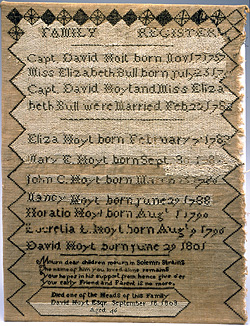 FAMILY REGISTER
Capt. David Hoit born
Miss Elizabeth Bull born july
Capt. David Hoyt and Miss Eliza
beth Bull were Married Feb 22
Eliza Hoyt born February
Mary C. Hoyt born Sept.
John C. Hoyt born
Nancy Hoyt born june 29 1788
Horatio Hoyt born Augst 1 1790
Lucretia L. Hoyt born Augst 9 1796
David Hoyt born june 29 1801
Mourn dear children mourn in Solemn Strains
The name of him you loved alone remains
your hopes in his support from hence give oer
your early Friend and Parent is no more.
Died one of the Heads of this Family
David Hoyt Esqr September 16 1803
Aged 46